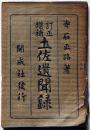 寺石正路著
訂正
増補
土佐遺聞録
開成社發行